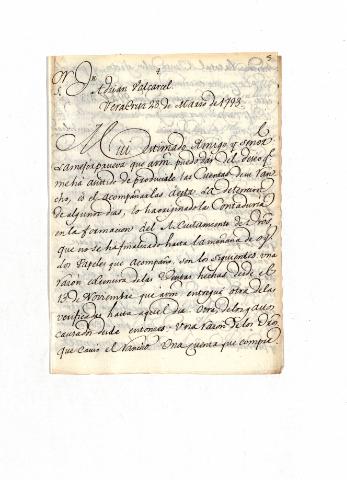 5
Sr. Dn. Adrian Valcarcel
Veracruz 23 de Marzo de 1793
Mui Estimado Amigo y Señor
La mejor prueva que a Vm. puedo dar del deseo q.
me ha asistido de producirle las Cuentas de su Ran
cho, es el acompañarlas a esta. La detencion
de algunos dias, la ha originado la Contaduria
en la formacion del
que no se ha finalizado hasta la mañana de oy.
Los Papeles que acompaño, son los siguientes: una
razon de las Ventas hechas desde el
13 de Noviembre que a Vm. entregué otra de las
verificadas hasta aquel dia otra, de los gastos
causados desde entonces. Una razon de los Dros.
que causó el Rancho Una cuenta que compre